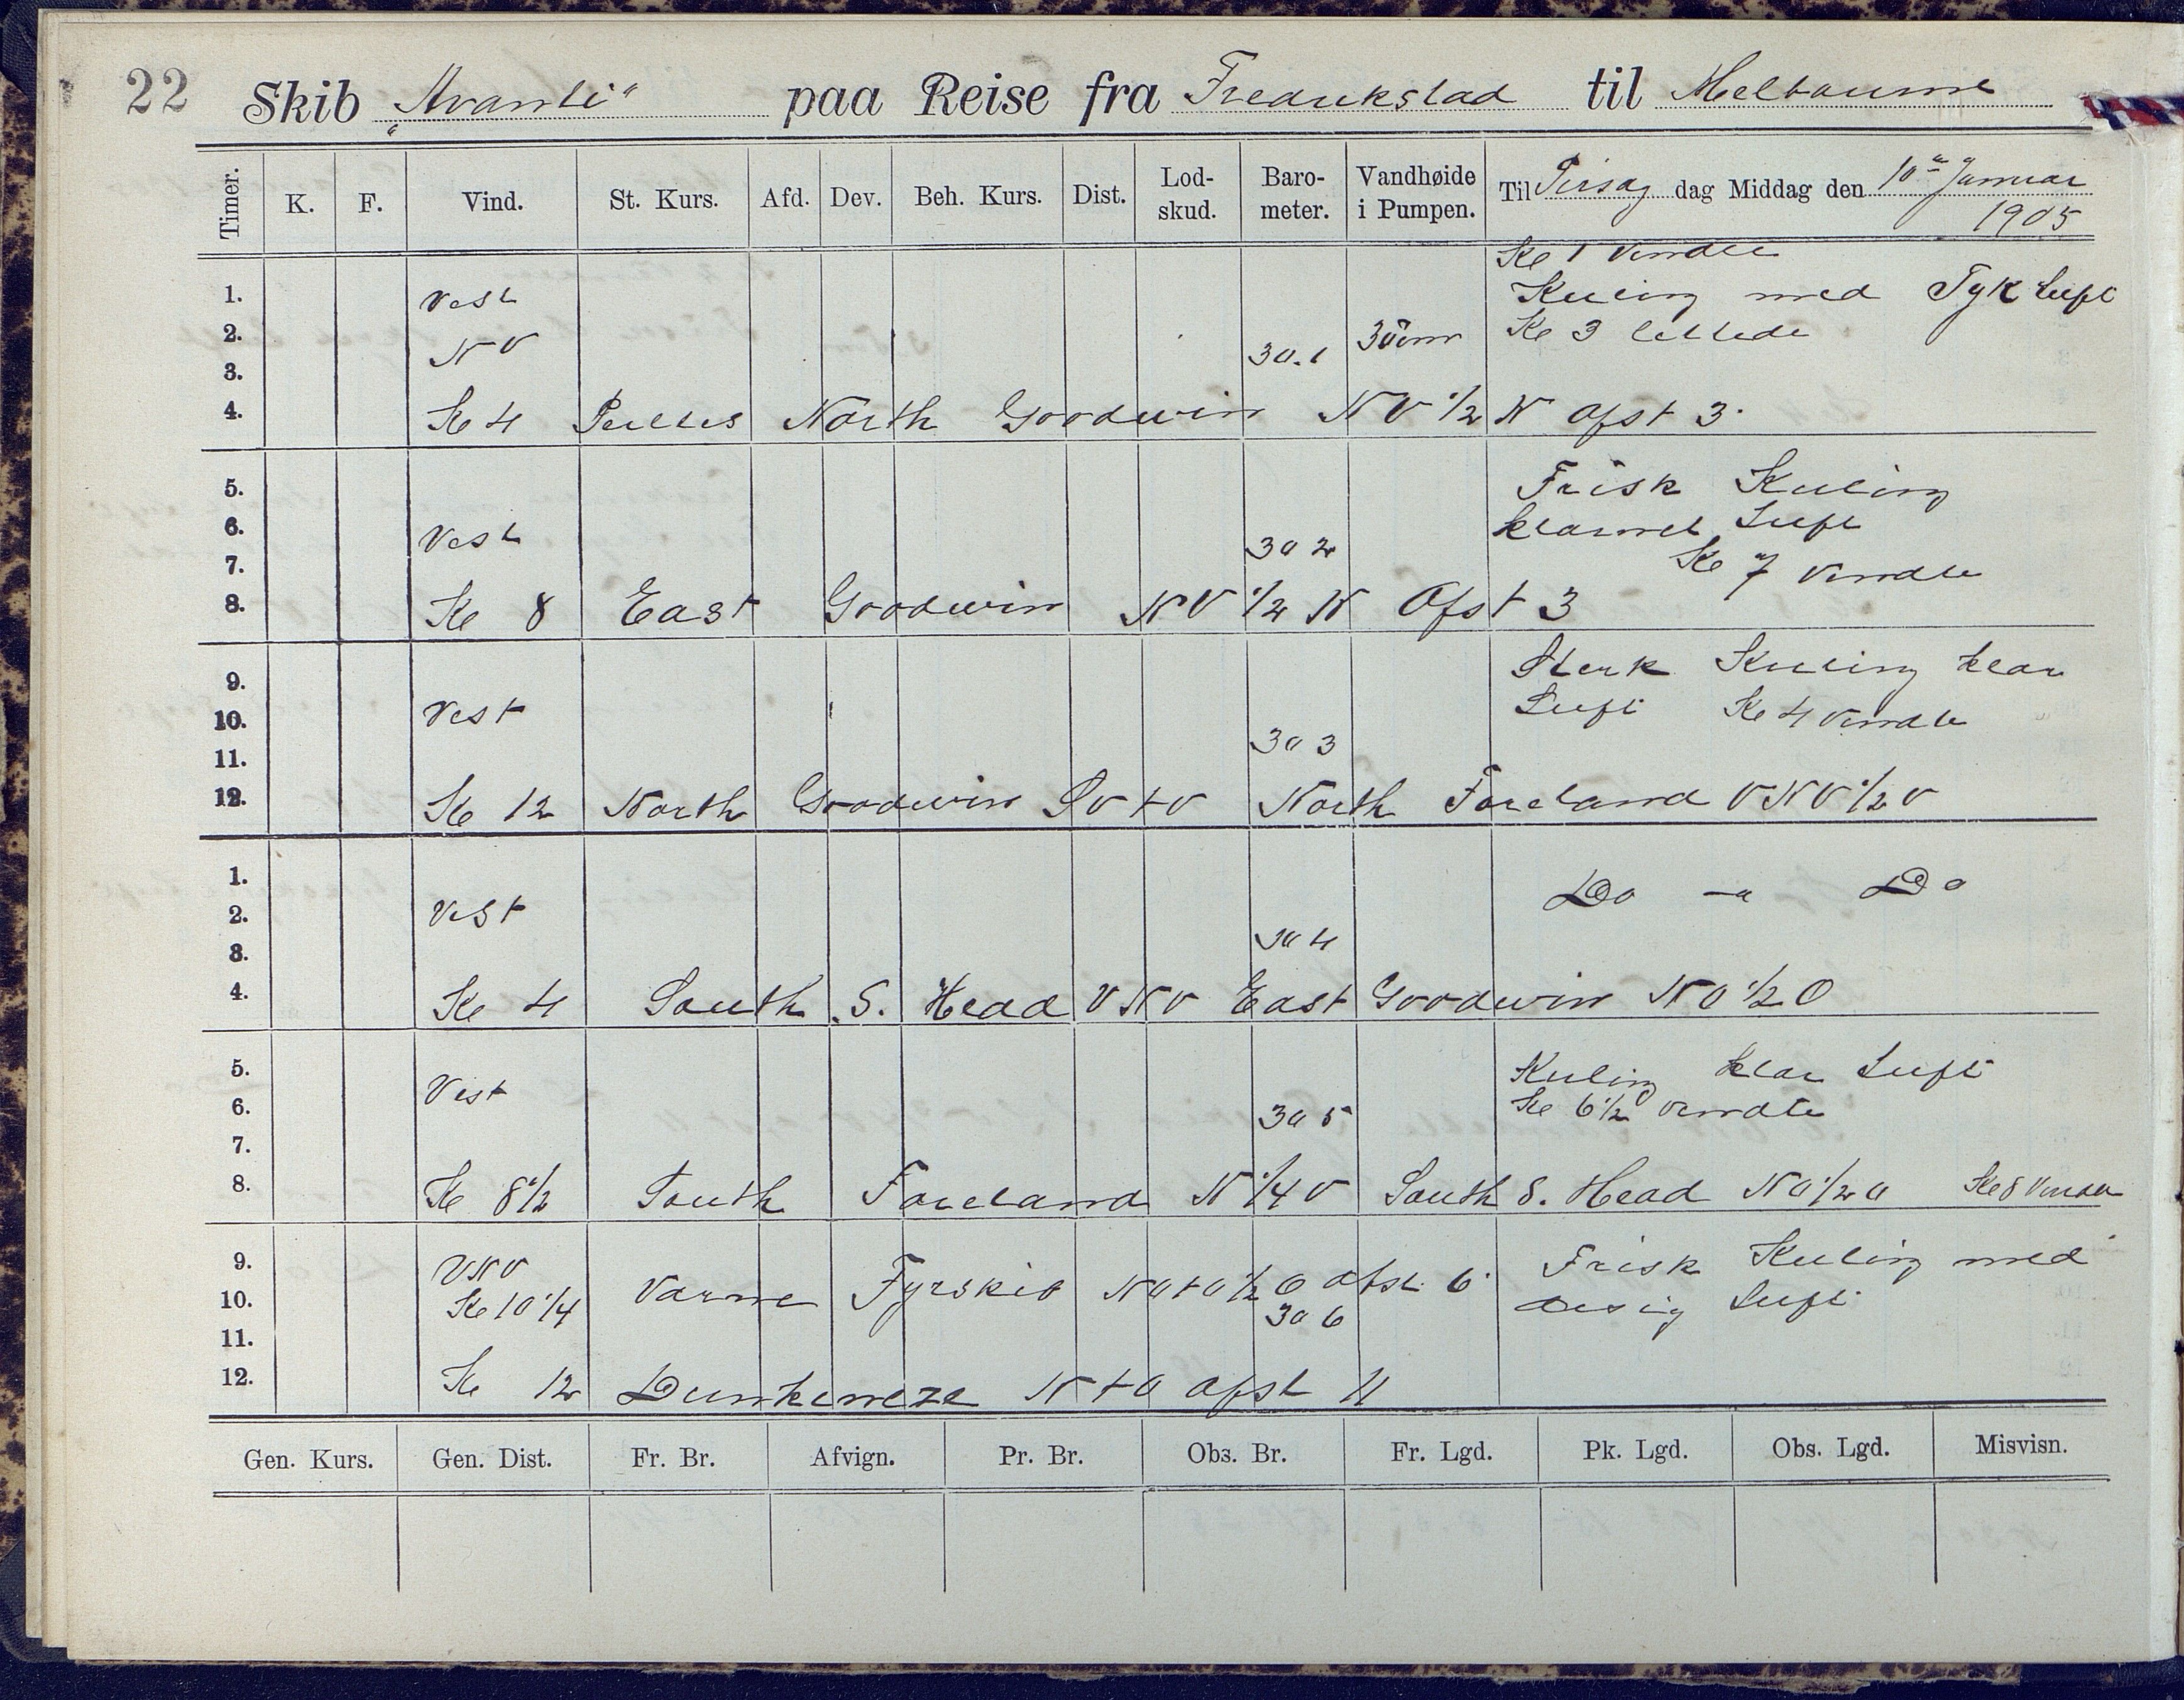 22 Skib „Avanti“ paa Reise fra Fredrikstad til Melbourne
Timer. K. F. Vind. St. Kurs. Afd. Dev. Beh. Kurs. Dist. Lod-skud. Baro-meter. Vandhøide i Pumpen. Til Tirsdag dag Middag den 10de Januar
1905
Kl 1 Vendte
1. Vest Kuling med Tyk Luft
2. NV 30.1 30cm Kl 3 lettede
3.
4. Kl 4 North Goodwin NV 1/2 N Afst 3
5. Frisk Kuling
6. Vest 30 2 klarnet Luft
7. Kl 7 Vendte
8. Kl 8 East Goodwin NV 1/2 N Afst 3
9. Sterk Kuling klar
10. Vest Luft Kl 4 Vendte
11. 30 3
12. Kl 12 North Goodwin SV t V North Foreland VNV 1/2 V
1. Do — Do
2. Vest
3. 30 4
4. Kl 4 South S. Head VNV East Goodwin NO 1/2 O
5. Kuling klar Luft
6. Vest 30 5 Kl 6 1/2 vendte
7.
8. Kl 8 1/2 South Foreland N 1/4 V South S. Head NO 1/2 O Kl 8 Vendte
9. VNV Frisk Kuling med
10. Kl 10 1/4 Varne Fyrskib NO t O 1/2 O Afst. 6 disig Luft
11. 30 6
12. Kl 12 Dunkeneze N t O Afst 11
Gen. Kurs. Gen. Dist. Fr. Br. Afvign. Pr. Br. Obs. Br. Fr. Lgd. Pk. Lgd. Obs. Lgd. Misvisn.